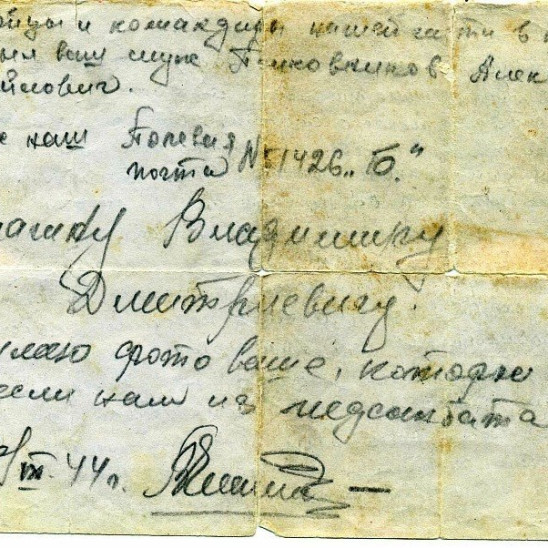 йцы и командиры нашей части в к
был ваш муж Полковников Алек
йлович.
с наш Полевая
почта № 1426 „Б."
Владимиру
Дмитриевичу.
лаю фото ваше, которое
если нам из медсанбата
III. 44 г.